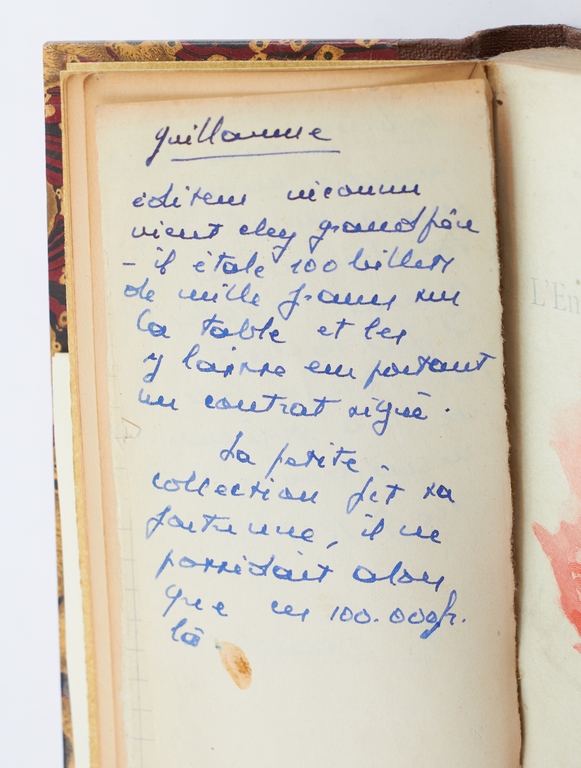 Guillaume
éditeur inconnu
vient chez grandpère
- il étale 100 billets
de mille francs sur
la table et les
y laisse emportant
un contrat signé.
La petite
collection fit sa
fortune, il ne
possédait alors
que ces 100.000fr.
là
L'En